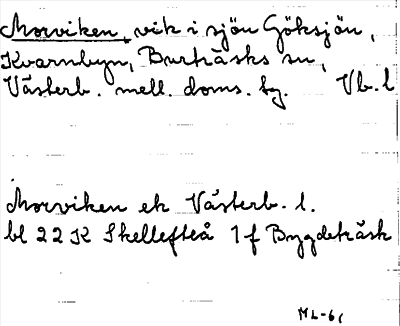 Morviken, vik i sjön Göksjön,
Kvarnbyn, Burträsks sn,
Västerb. mell. doms. bg. Vb. l
Morviken ek Västerb. l.
bl 22 K Skellefteå 1 f Bygdeträsk
ML-61